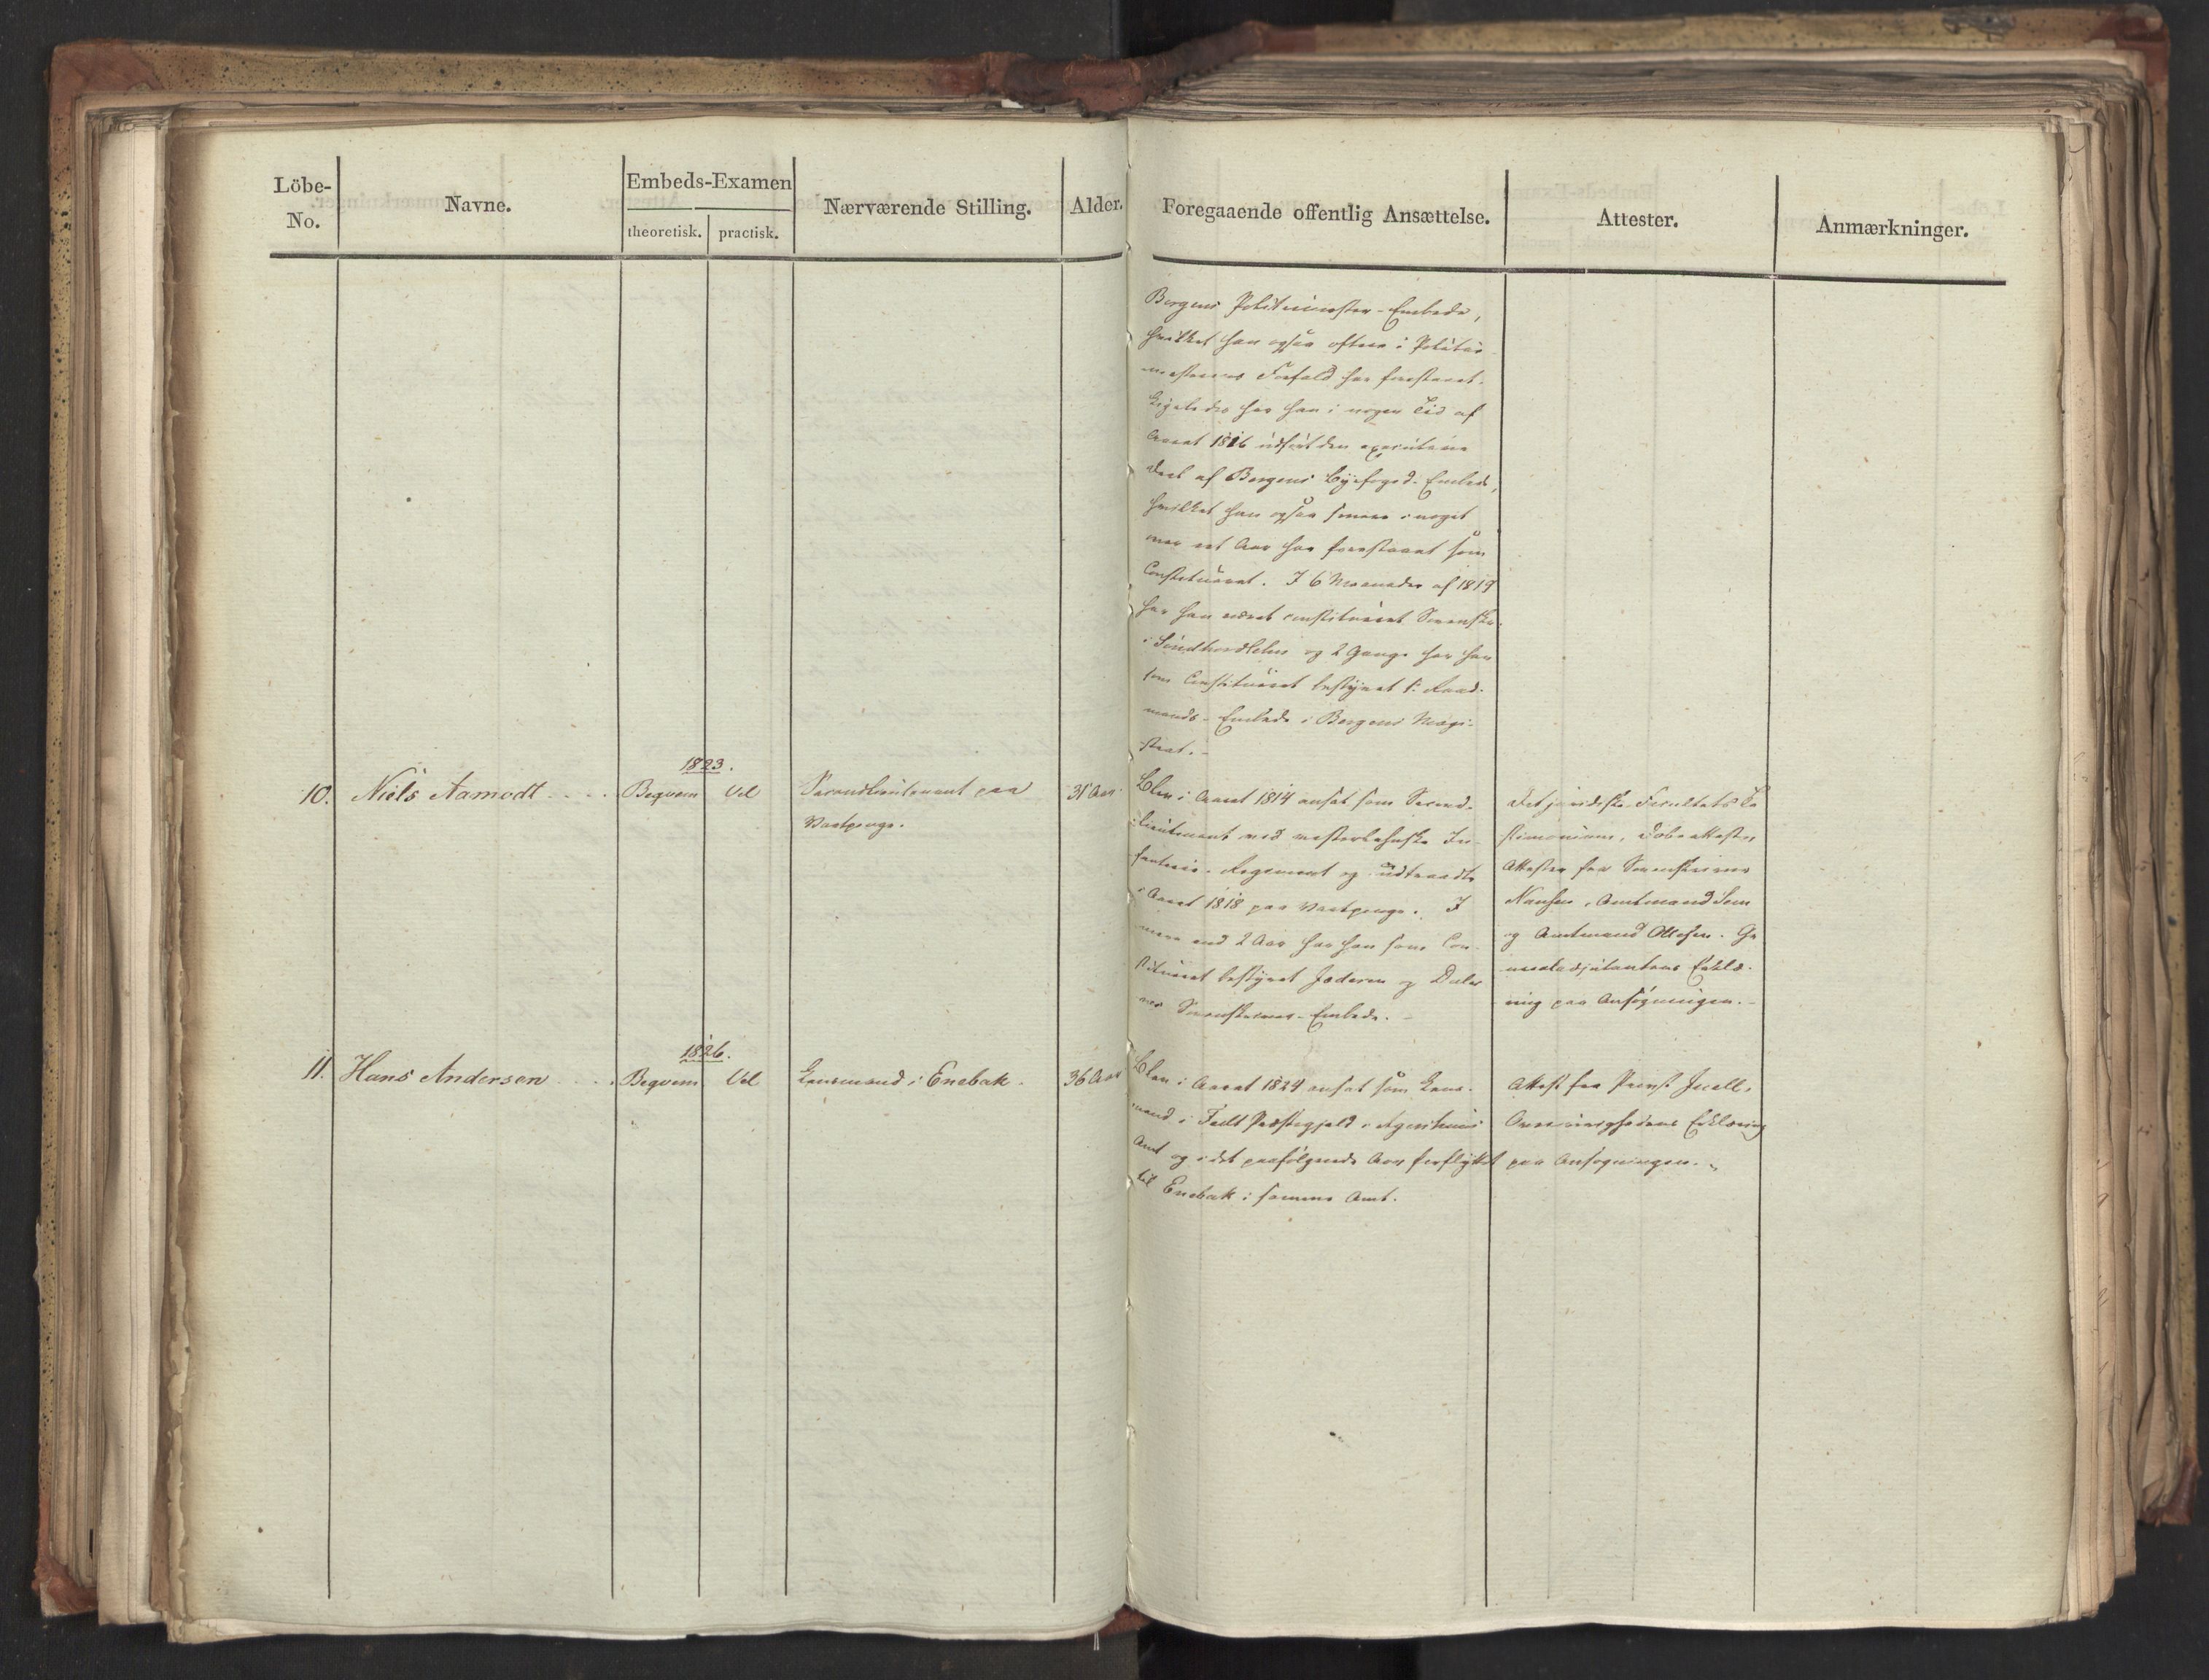 Löbe-
No.
Navne.
Embeds-Examen
theoretisk.
practisk.
Nærværende Stilling.
Alder.
Foregaaende offentlig Ansættelse.
Attester.
Anmærkninger.
Bergens Politiemester-Embede,
hvilket han ogsaa oftere i Politie-
mesterens Forfald har forestaaet.
Ligeledes har han i nogen Tid af
Aaret 1816 udført den executive
Deel af Bergens Byefoged-Embede,
hvilket han ogsaa senere i noget
mer eet Aar har forestaaet som
Constitueret. I 6 Maaneder af 1819
har han været constitueret Sorenskr.
i Søndhordlehn og 2 Gange har han
som Constitueret bestyret 1. Raad-
mands-Embede i Bergens Magi-
strat.-
1823.
10. Niels Aamodt . . . .
Beqvem
Vel
Secondlieutenant paa
Vartpenge.
31 Aar.
Blev i Aaret 1814 ansat som Second-
lieutenant ved vesterlehnske In-
fanterie-Regement og udtraadte
i Aaret 1818 paa Vartpenge. I
mere end 2 Aar har han som Con-
stitueret bestyret Jæderen og Daler-
nes Sorenskriver-Embede. -
Det juridiske Facultets Te
stimonium, Døbeattesten
Attester fra Sorenskriver
Nansen, Amtmand Sem
og Amtmand Ottesen. Ge
neraladjutantens Erklæ-
ring paa Ansøgningen. -
1826.
11. Hans Andersen . . . .
Beqvem
Vel
Lensmand i Enebak.
36 Aar
Blev i Aaret 1824 ansat som Lens-
mand i Fedt Præstegjeld i Agershuus
Amt og i det paafølgende Aar forflyttet
til Enebak i samme Amt.
Attest fra Provst Juell.
Overøvrighedens Erklæring
paa Ansøgningen. -